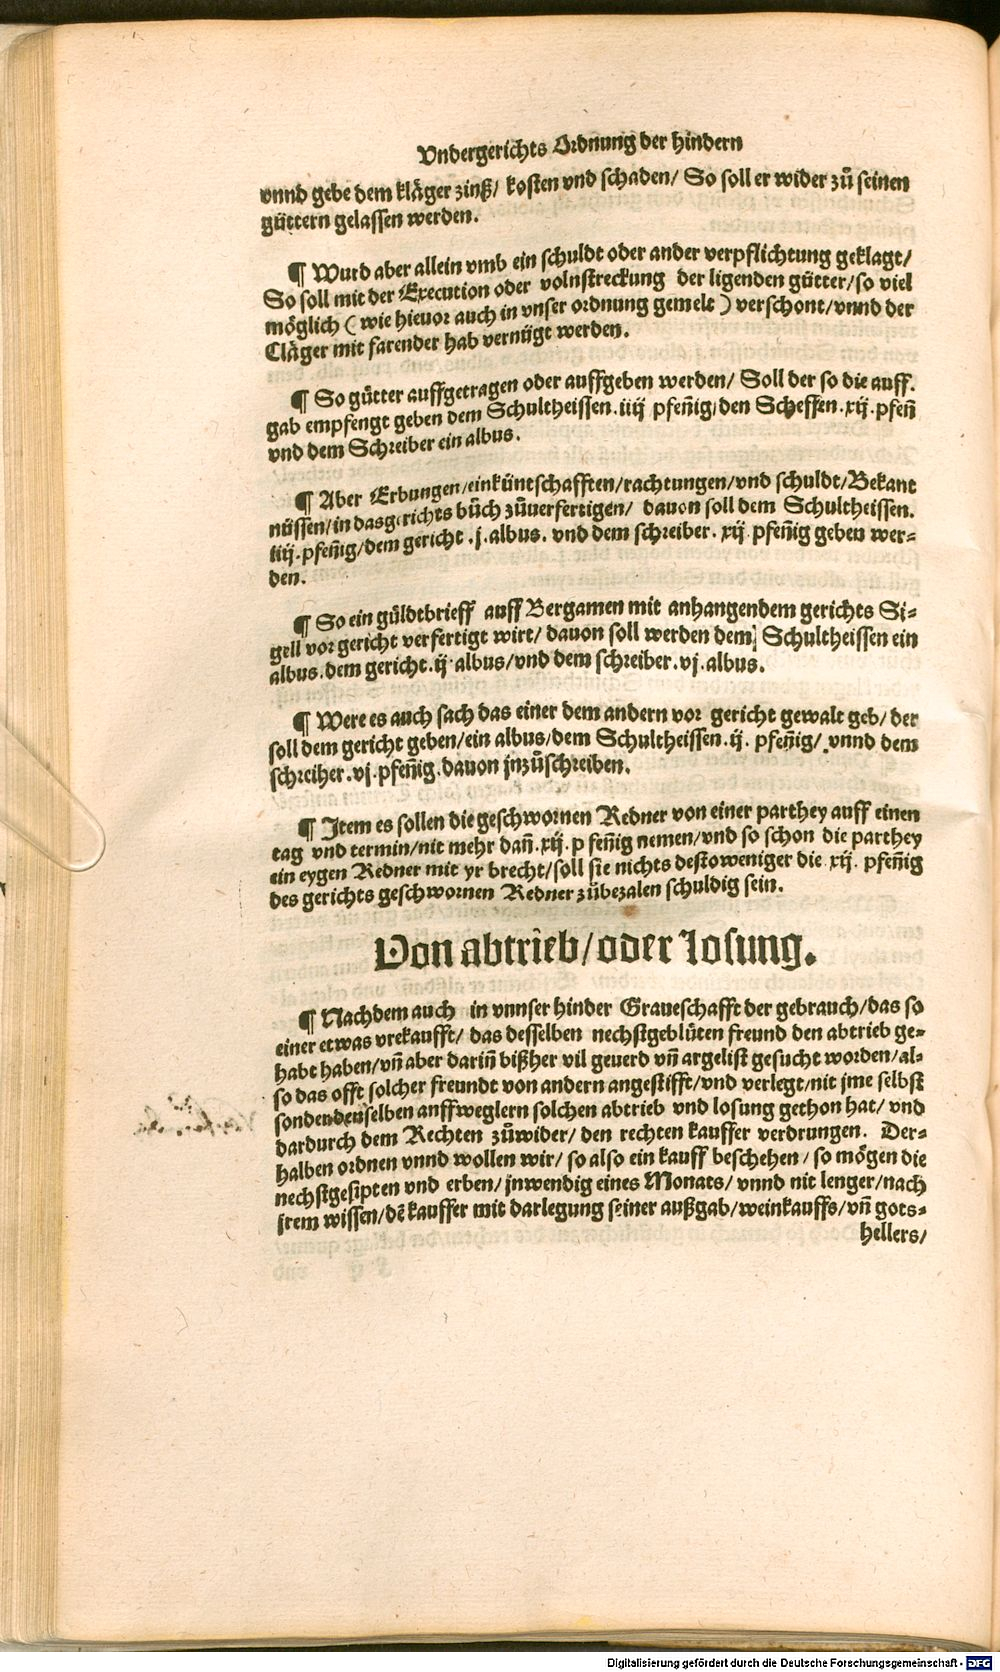 Vndergerichts Ordnung der hindern
vnnd gebe dem kläger zinß/ kosten vnd schaden/ So soll er wider zů seinen
güttern gelassen werden.
¶ Wurd aber allein vmb ein schuldt oder ander verpflichtung geklagt/
So soll mit der Execution oder volnstreckung der ligenden gütter/so viel
möglich ( wie hieuor auch in vnser ordnung gemelt ) verschont/vnnd der
Cläger mit farender hab vernügt werden.
¶ So gütter auffgetragen oder auffgeben werden/ Soll der so die auff.
gab empfengt geben dem Schultheissen .iiij pfeñig/den Scheffen .xij. pfeñ
vnd dem Schreiber ein albus.
¶ Aber Erbungen/einküntschafften/rachtungen/vnd schuldt/Bekant
nüssen/in das gerichts bůch zůuerfertigen/ dauon soll dem Schultheissen.
iiij. pfeñig/dem gericht .j. albus. vnd dem schreiber. xij pfeñig geben wer=
den.
¶ So ein güldtbrieff auff Bergamen mit anhangendem gerichts Si=
gell vor gericht verfertigt wirt/ dauon soll werden dem Schultheissen ein
albus. dem gericht .ij albus/vnd dem schreiber .vj. albus.
¶ Were es auch sach das einer dem andern vor gericht gewalt geb/ der
soll dem gericht geben/ein albus/dem Schultheissen .ij. pfeñig/ vnnd dem
schreiher .vj. pfeñig. dauon jnzůschreiben.
¶ Item es sollen die geschwornen Redner von einer parthey auff einen
tag vnd termin/nit mehr dañ .xij. pfeñig nemen/vnd so schon die parthey
ein eygen Redner mit yr brecht/soll sie nichts destoweniger die xij. pfeñig
des gerichts geschwornen Redner zůbezalen schuldig sein.
Von abtrieb/oder losung.
¶ Nachdem auch in vnnser hinder Graueschafft der gebrauch/das so
einer etwas vrekaufft/ das desselben nechstgeblüten freund den abtrieb ge=
habt haben/vñ aber dariñ bißher vil geuerd vñ argelist gesucht worden/al=
so das offt solcher freundt von andern angestifft/vnd verlegt/nit jme selbst
sondendenselben anffweglern solchen abtrieb vnd losung gethon hat/ vnd
dardurch dem Rechten zůwider/ den rechten kauffer verdrungen. Der=
halben ordnen vnnd wollen wir/ so also ein kauff beschehen/ so mögen die
nechstgesipten vnd erben/ jnwendig eines Monats/ vnnd nit lenger/nach
jrem wissen/dẽ kauffer mit darlegung seiner außgab/weinkauffs/vñ gots=
hellers/
Digitalisierung gefördert durch die Deutsche Forschungsgemeinschaft - DFG